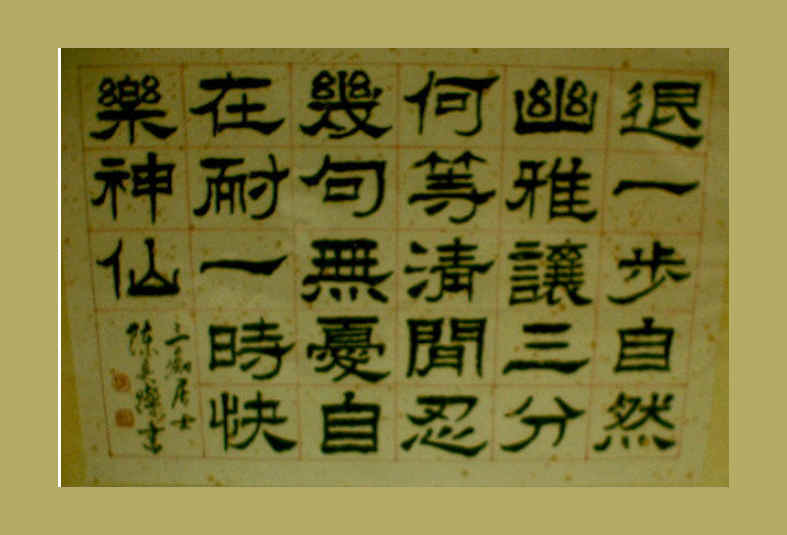 退一步自然
幽雅讓三分
何等清閒忍
幾句無憂自
在耐一時快
樂神仙
居士
陳
書